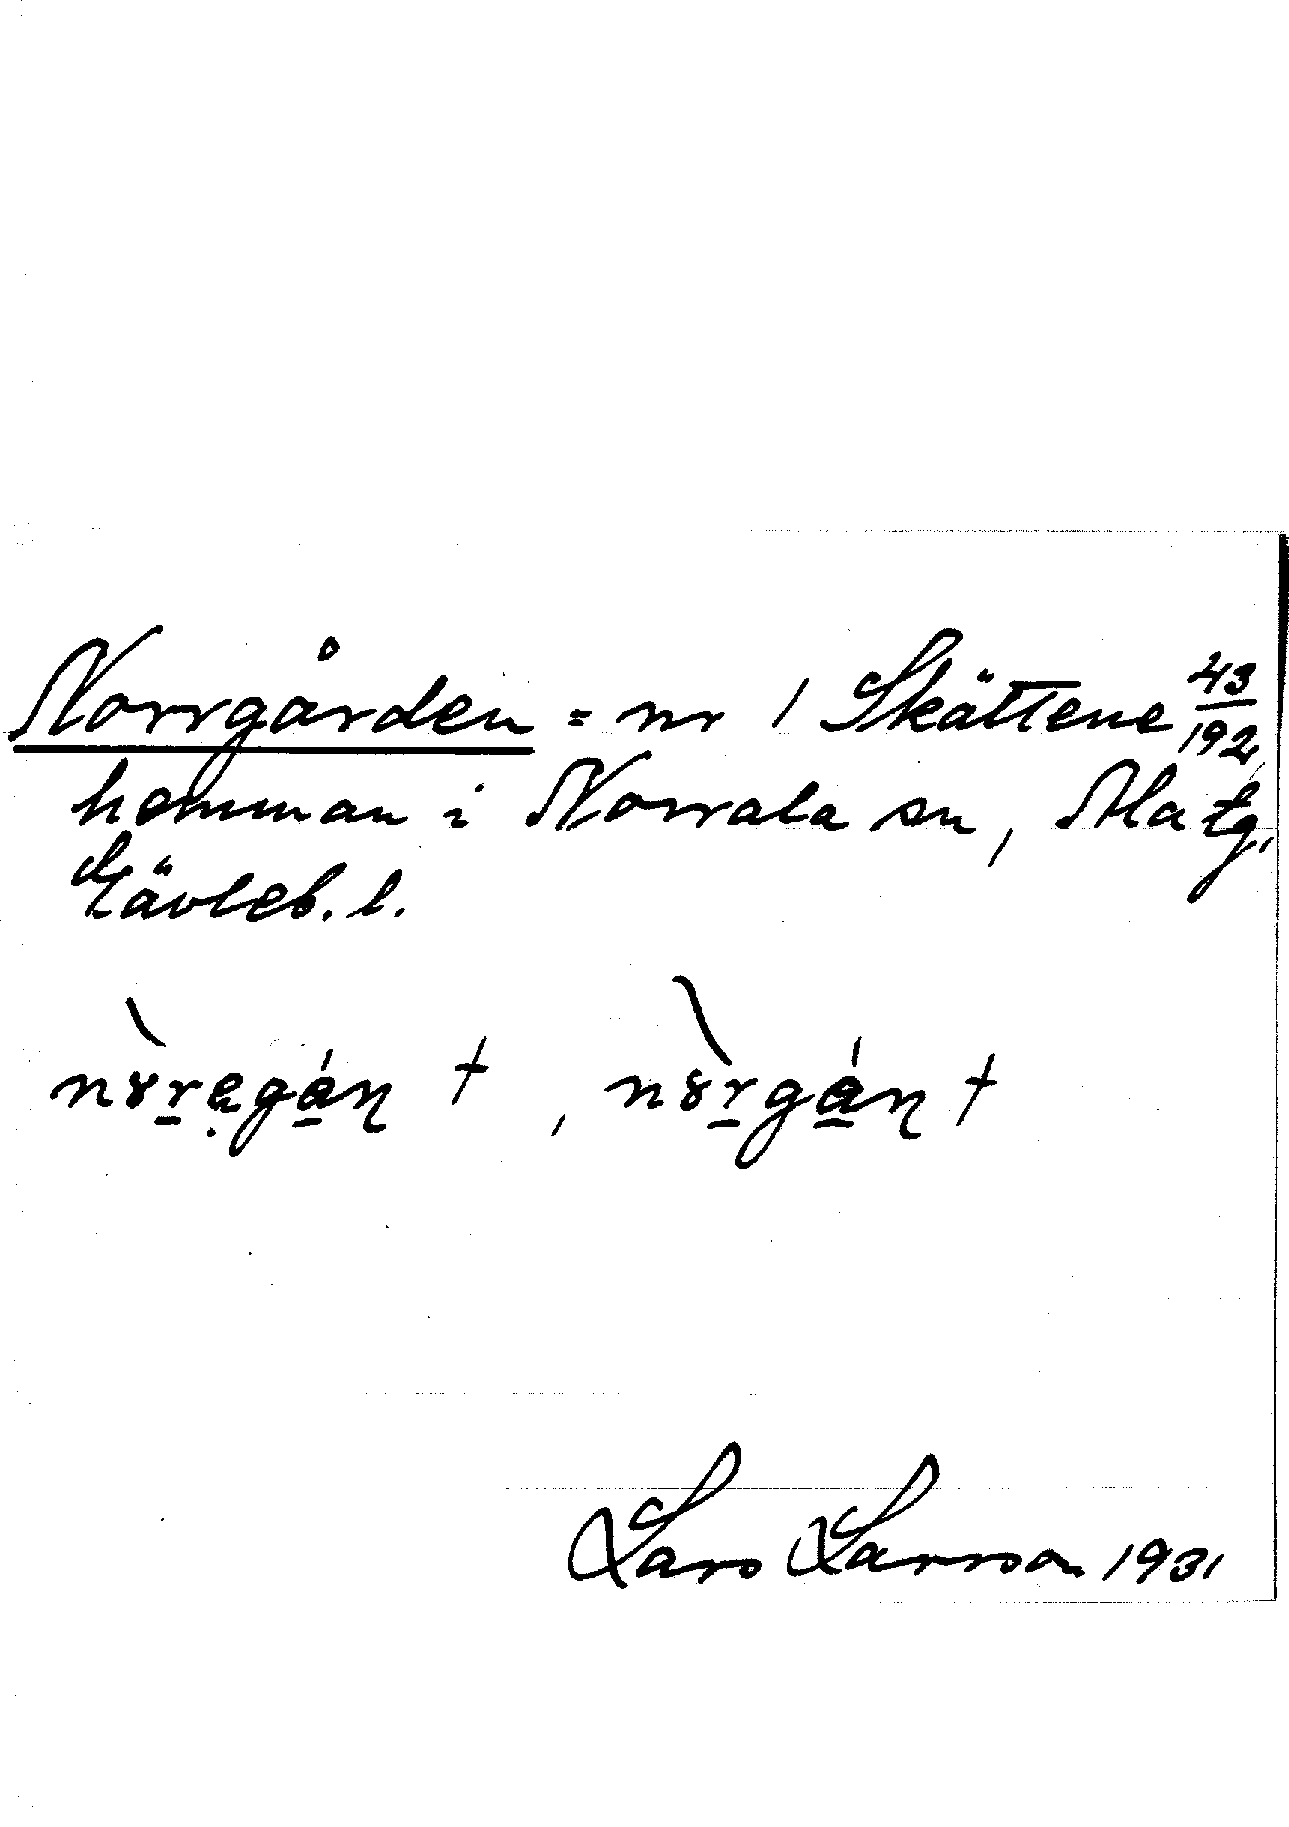 Norrgården = nr 1 Skättene 43/192
hemman i Norrala sn, Ala tg.
Gävleb. l.
nȣ̀rega̱ń ꝉ, nȣ̀rga̱ń ꝉ
Lars Larsson 1931